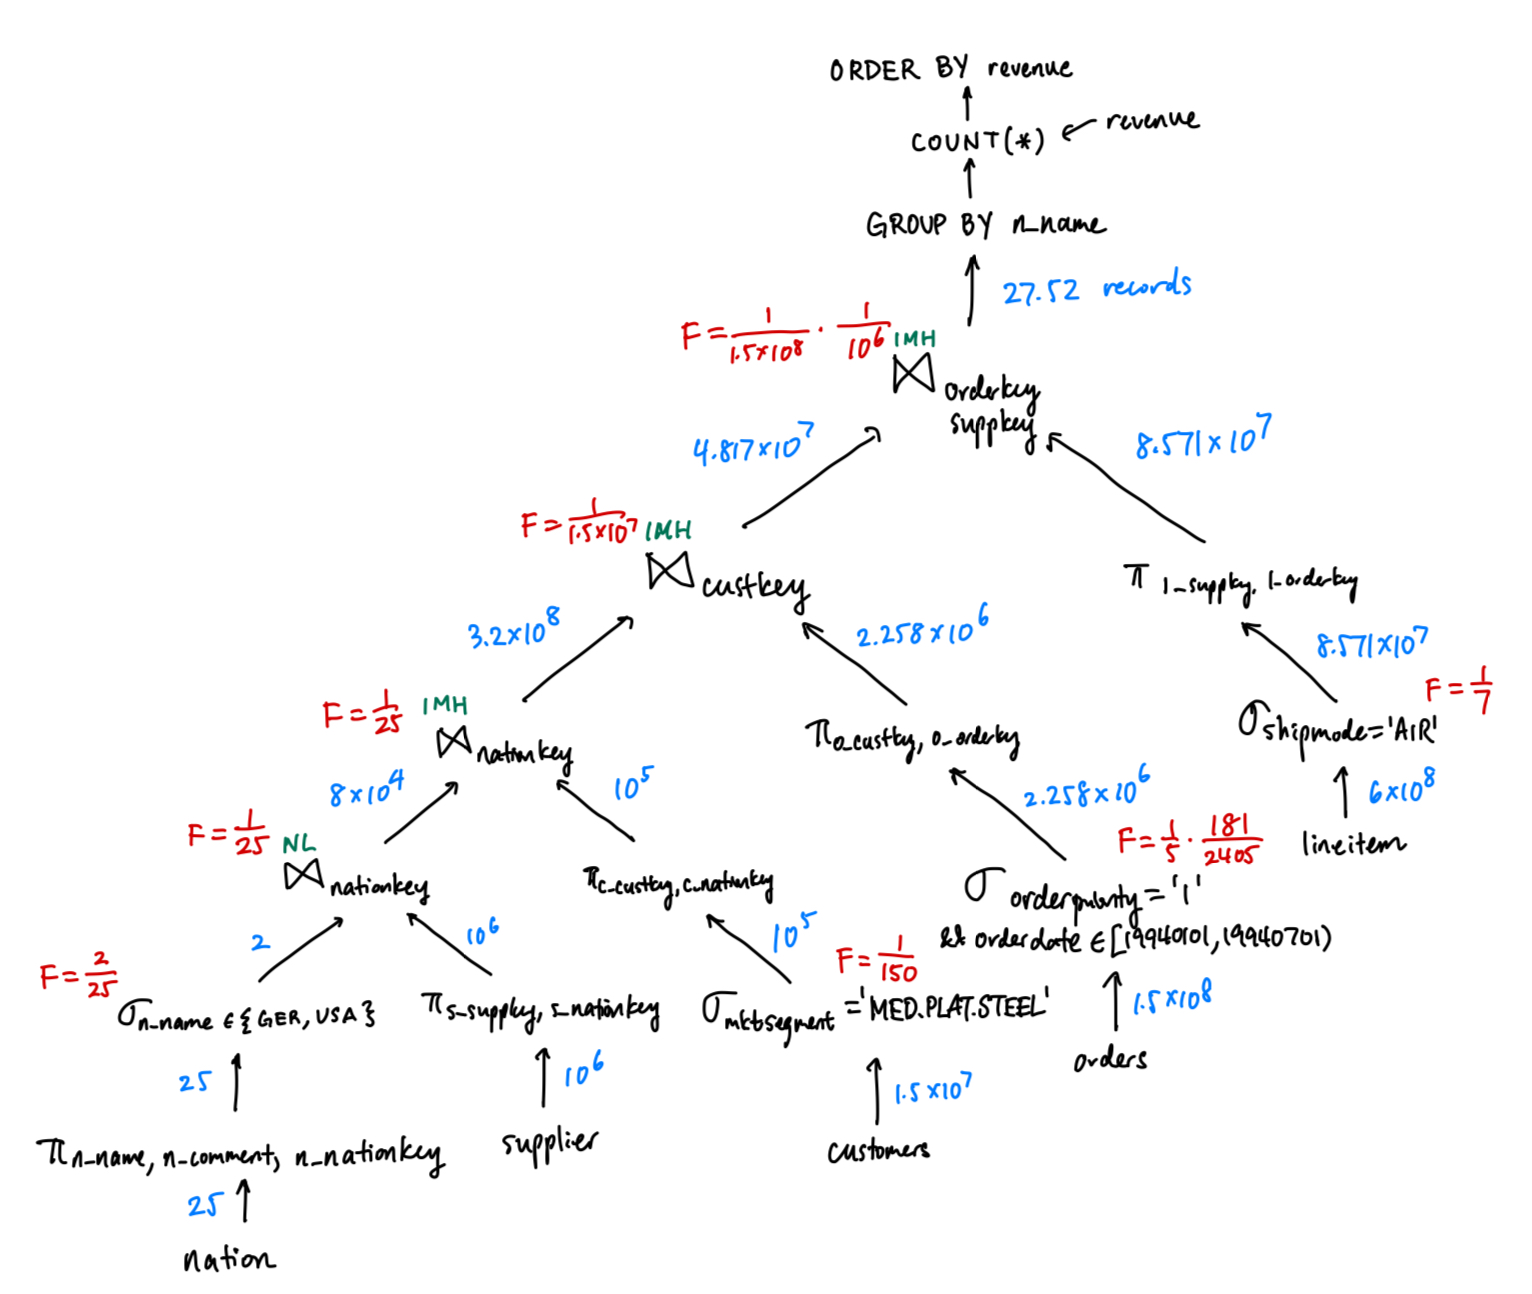 ORDER BY revenue
COUNT(*) ← revenue
GROUP BY n_name
27.52 records
F = 1/1.5×10⁸ · 1/10⁶ IMH
⋈ orderkey
suppkey
4.817×10⁷
8.571×10⁷
F = 1/1.5×10⁷ IMH
⋈ custkey
π l_suppky, l_orderky
3.2×10⁸
2.258×10⁶
8.571×10⁷
F = 1/7
F = 1/25 IMH
⋈ nationkey
π o_custky, o_orderky
σ shipmode='AIR'
8×10⁴
10⁵
2.258×10⁶
6×10⁸
F = 1/25 NL
⋈ nationkey
π c_custky, c_nationky
F = 1/5 · 181/2405
lineitem
σ orderpriority = '1'
&& orderdate ∈ [19940101, 19940701)
2
10⁶
10⁵
F = 2/25
F = 1/150
σ n_name ∈ {GER, USA}
π s_suppky, s_nationkey
σ mktsegment = 'MED.PLAT.STEEL'
1.5×10⁸
orders
25
10⁶
1.5×10⁷
π n_name, n_comment, n_nationkey
supplier
customers
25
nation